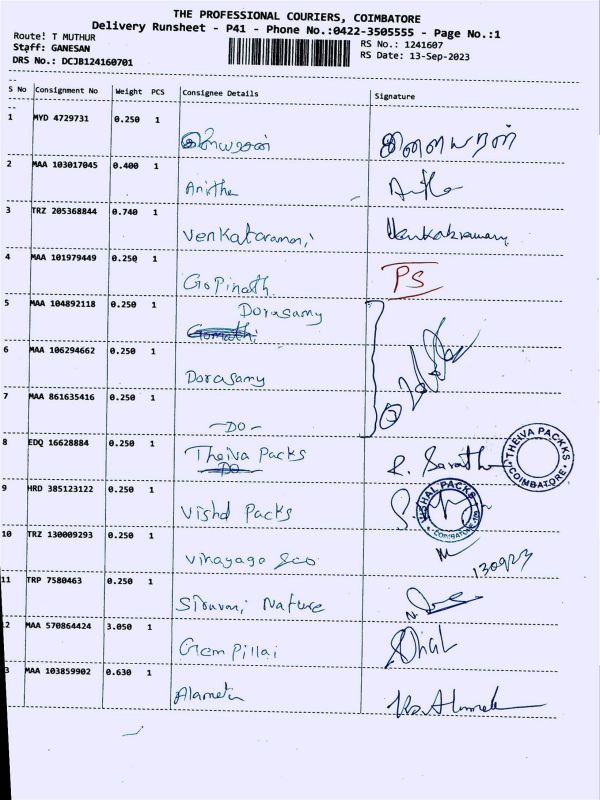 THE PROFESSIONAL COURIERS, COIMBATORE
Delivery Runsheet - P41 - Phone No.:0422-3505555 - Page No.:1
Route: T MUTHUR
RS No.: 1241607
Staff: GANESAN
RS Date: 13-Sep-2023
DRS No.: DCJB124160701
S No Consignment No Weight PCS Consignee Details Signature
1 MYD 4729731 0.250 1
2 MAA 103017045 0.400 1
Anitha
3 TRZ 205368844 0.740 1
Venkataramani
4 MAA 101979449 0.250 1
Gopinath PS
5 MAA 104892118 0.250 1 Dorasamy
Gomathi
6 MAA 106294662 0.250 1
Dorasamy
7 MAA 861635416 0.250 1
-DO-
8 EDQ 16628884 0.250 1
Theiva Packs R. Sarath THEIVA PACKKS COIMBATORE
DO
9 HRD 385123122 0.250 1
Vishal Packs VISHAL PACKS COIMBATORE
10 TRZ 130009293 0.250 1
Vinayaga 130923
11 TRP 7580463 0.250 1
Siruvani Nature
12 MAA 570864424 3.050 1
Gem Pillai
13 MAA 103859902 0.630 1